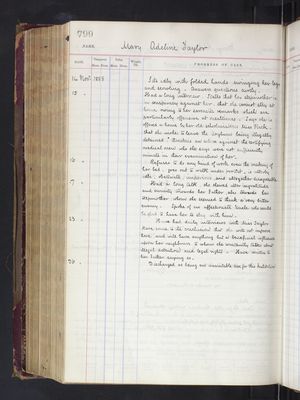 799
NAME, Mary Adeline Taylor
DATE.
PROGRESS OF CASE.
14 Nov. 1888
Sits idly with folded hands swinging her legs
and scowling. Answers questions curtly.
15
Had a long interview. States that her stepmother is
in conspiracy against her, that she cannot stay at
home owing to her remarks which are
particularly offensive at mealtimes. Says she is
offered a home by her old schoolmistress Miss
that she wishes to leave the Asylum being illegally
detained. Threatens an action against the certifying
medical men who she says were not
minutes in their examination of her.
16
Refuses to do any kind of work even the making of
her bed, goes out to walk under protest, is utterly
idle and altogether disagreeable
17
Had a long talk. She showed utter ingratitude
and enmity towards her father, also towards her
stepmother whom she seemed to think a very bitter
enemy. Spoke of an affectionate Uncle who would
be glad to have her to stay with him.
23
Have had daily interviews with Miss Taylor
have come to the conclusion that she will not improve
here and will have anything but a beneficial influence
upon her neighbours to whom she constantly talks about
illegal detention and legal rights. Have written to
her father saying so.
30
Discharged as being not a suitable case for this Institution